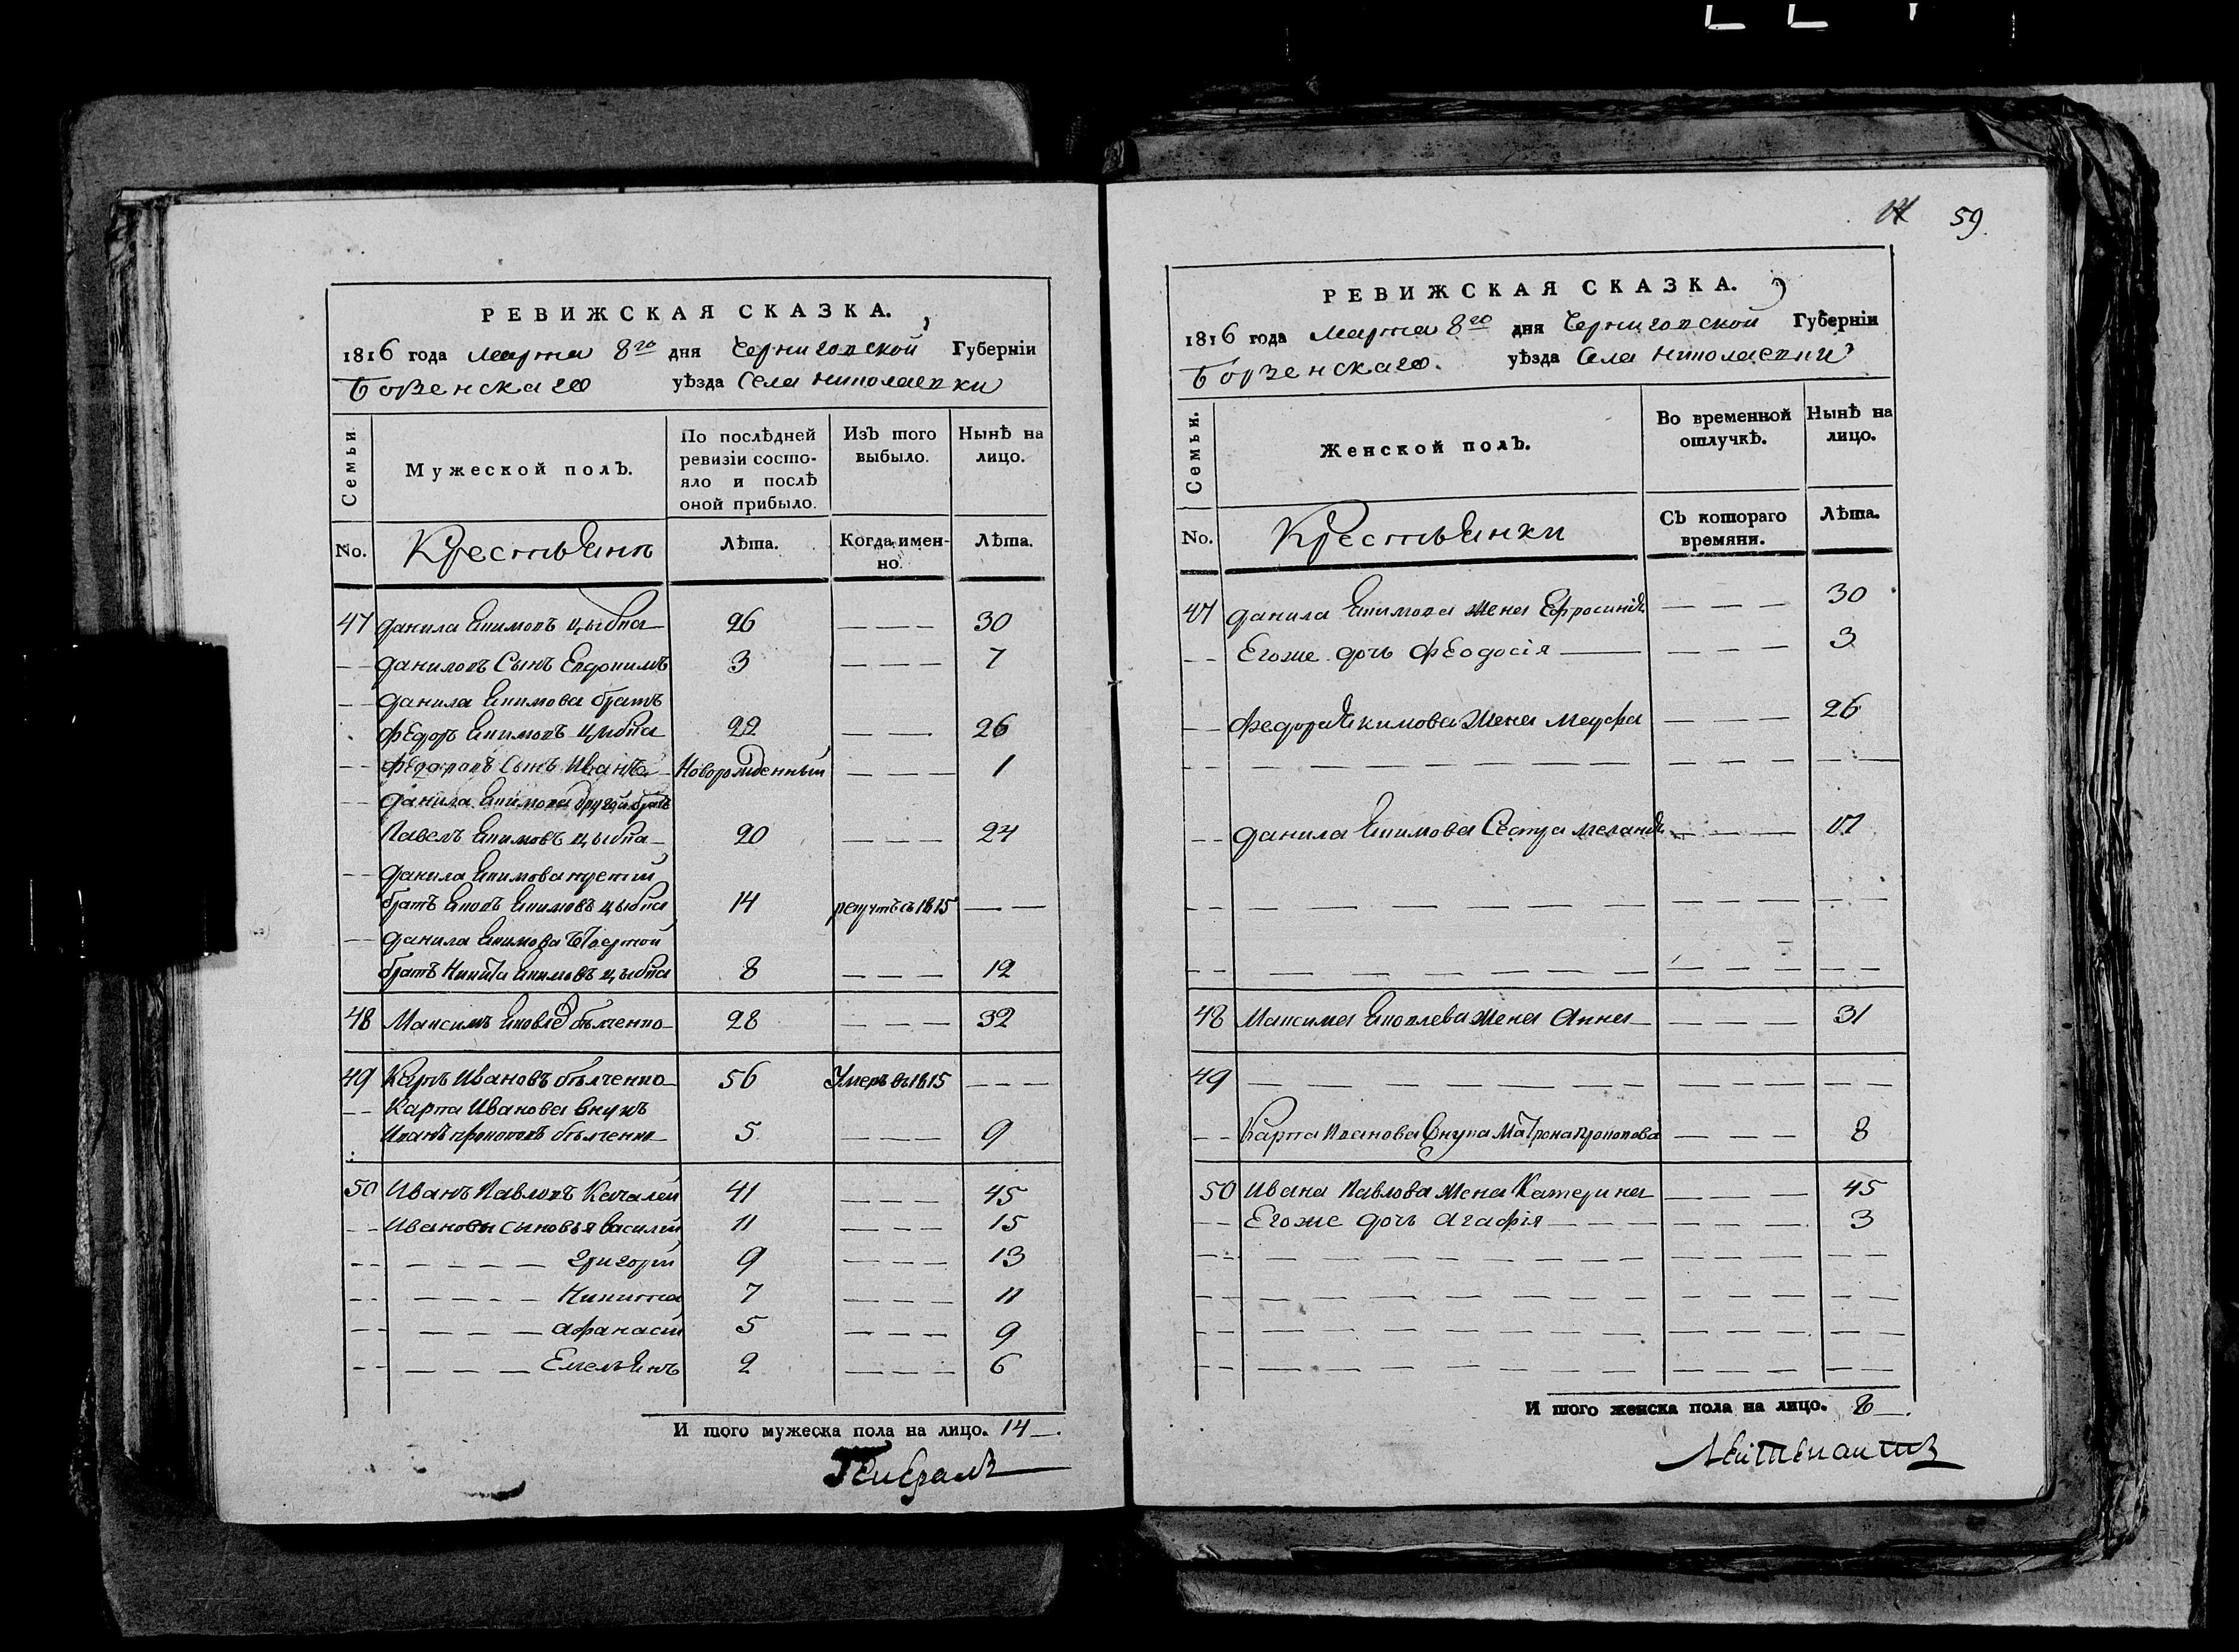 РЕВИЖСКАЯ СКАЗКА.
1816 года марта 8го дня Черниговской Губерніи
Борзенскаго уѣзда Села николаевки
Семьи
Мужеской полъ.
По послѣдней ревизіи состояло и послѣ оной прибыло.
Изъ того выбыло.
Нынѣ на лицо.
No.
Крестьянъ
Лѣта.
Когда имен-но.
Лѣта.
47 данила Якимовъ цыбка 26 — — — 30
— — даниловъ Сынъ Евдокимъ 3 — — — 7
— — данила Якимова братъ
федоръ Якимовъ цыбка 22 — — 26
— — федоровъ Сынъ Иванъ Новорожденный — — — 1
— — данила Якимова другой братъ
Павелъ Якимовъ цыбка 20 — — — 24
— — данила Якимова третій
братъ Яковъ Якимовъ цыбка 14 рекутъ съ 1815 — —
— — данила Якимова
братъ Никита Якимовъ цыбка 8 — — — 12
48 Максимъ Яковлевъ бѣлченко 28 — — — 32
49 Карпъ Ивановъ бѣлченко 56 Умеръ въ 1815 — — —
— — Карпа Иванова Внукъ
Иванъ прокоповъ бѣлченко 5 — — — 9
50 Иванъ Павловъ Качалей 41 — — — 45
— — Ивановы сыновья василій 11 — — — 15
— — — — — — григорій 9 — — — 13
— — — — — — Никита 7 — — — 11
— — — — — — афанасій 5 — — — 9
— — — — — — Емельянъ 2 — — — 6
И того мужеска пола на лицо. 14 —.
Генералъ
59
РЕВИЖСКАЯ СКАЗКА.
1816 года марта 8го дня Черниговской Губерніи
Борзенскаго. уѣзда Села николаевки
Семьи.
Женской полъ.
Во временной отлучкѣ.
Нынѣ на лицо.
No.
Крестьянки
Съ котораго времяни.
Лѣта.
47 данила Якимова жена Ефросинія — — — 30
— — Егоже дочь феодосія — — — — 3
— — федора Якимова жена марфа — — — 26
— — — — — — — — — — — — — —
— — данила Якимова Сестра меланія — — — 17
— — — — — — — — — — — — — —
— — — — — — — — — — — — — —
48 Максима Яковлева жена Анна — — — — 31
49 — — — — — — — — — — — — —
— — Карпа Иванова Внука Матрона прокопова — — — 8
50 Ивана Павлова жена Катерина — — — 45
— — Егоже дочь агафія — — — — — — 3
— — — — — — — — — — — — — —
— — — — — — — — — — — — — —
— — — — — — — — — — — — — —
— — — — — — — — — — — — — —
И того женска пола на лицо. 8 —.
Лейтенантъ